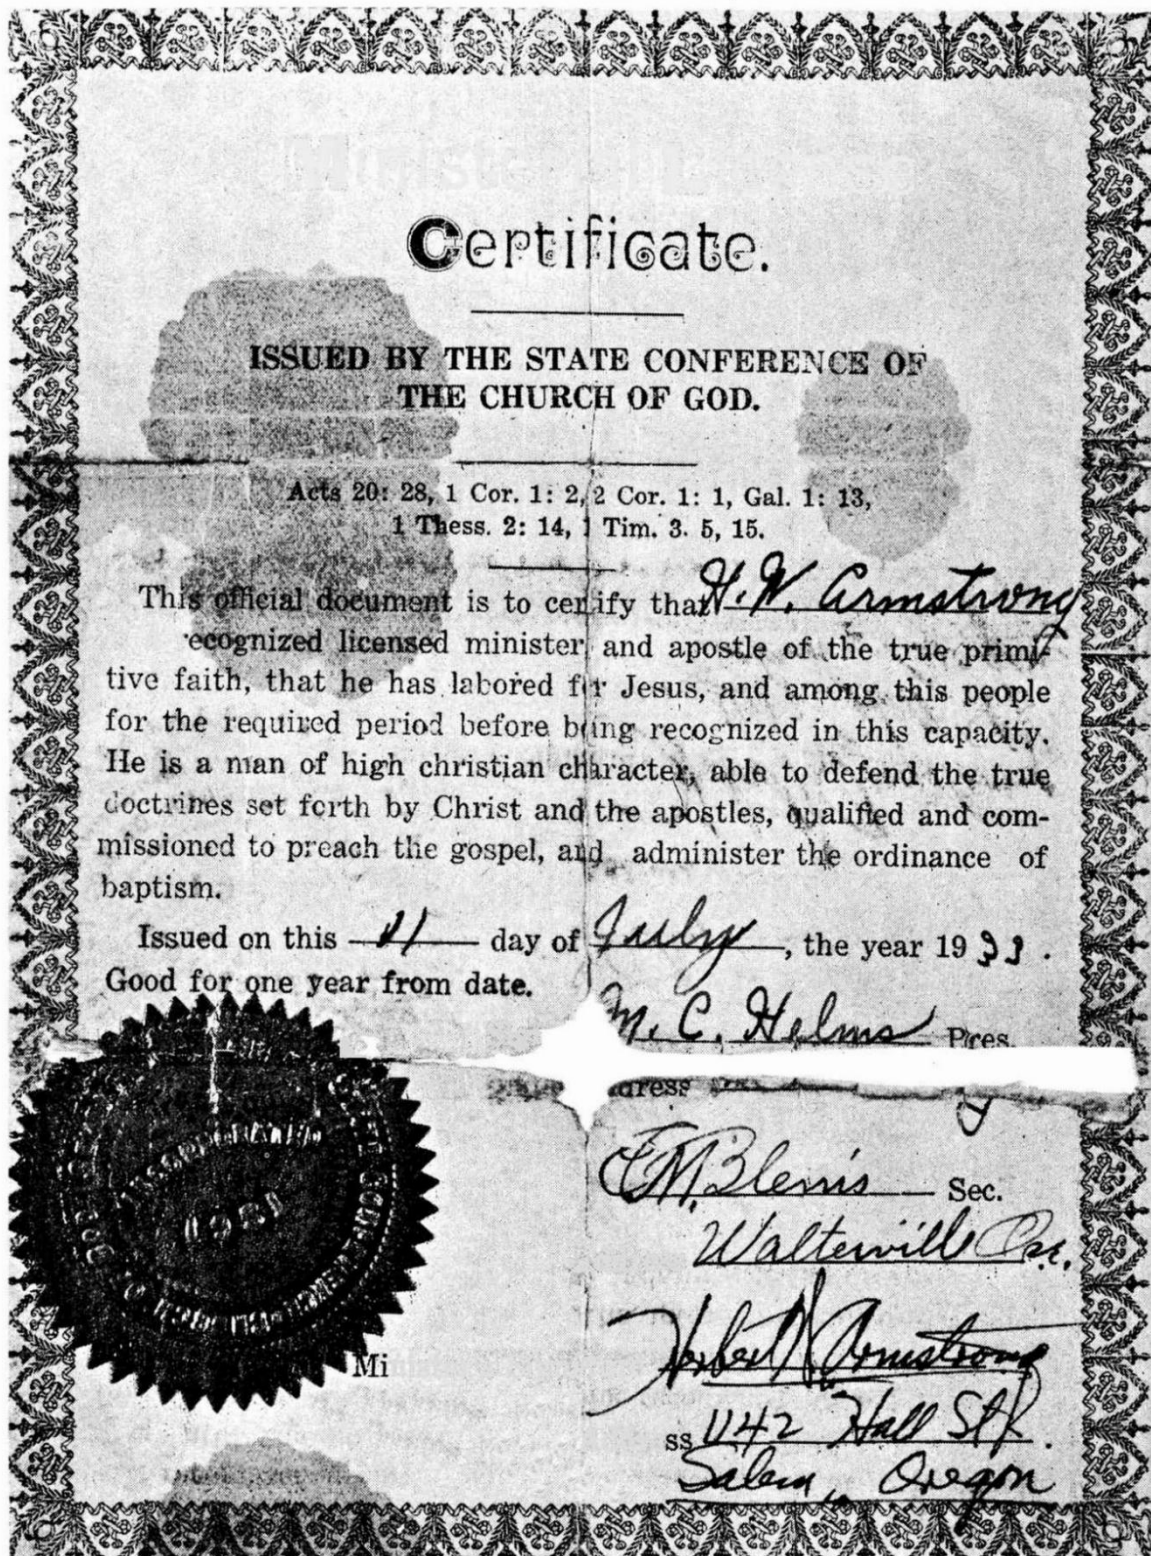 Certificate.
ISSUED BY THE STATE CONFERENCE OF
THE CHURCH OF GOD.
Acts 20: 28, 1 Cor. 1: 2, 2 Cor. 1: 1, Gal. 1: 13,
1 Thess. 2: 14, 1 Tim. 3. 5, 15.
This official document is to certify that H. W. Armstrong
recognized licensed minister and apostle of the true primi-
tive faith, that he has labored for Jesus, and among this people
for the required period before being recognized in this capacity.
He is a man of high christian character, able to defend the true
doctrines set forth by Christ and the apostles, qualified and com-
missioned to preach the gospel, and administer the ordinance of
baptism.
Issued on this 11 day of July, the year 1933.
Good for one year from date.
M. C. Helms Pres.
dress
Sec.
Walterville Ore.
Herbert W Armstrong
Mi
ss 1142 Hall St.
Salem, Oregon
INCORPORATED